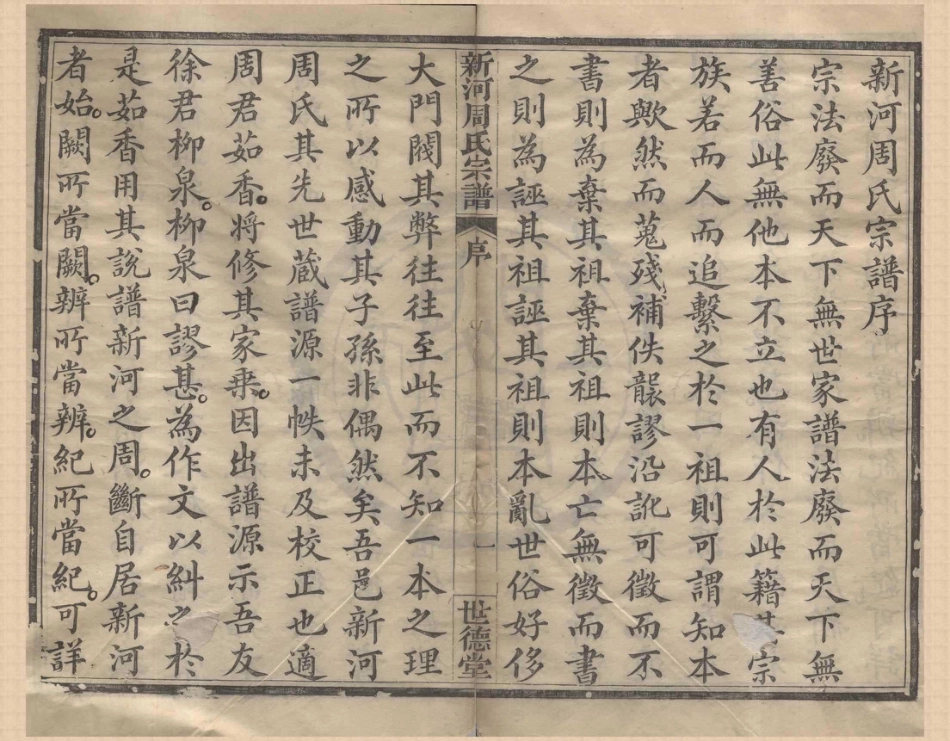 新河周氏宗譜序
宗法廢而天下無世家譜法廢而天下無
善俗此無他本不立也有人於此籍其宗
族若而人而追繫之於一祖則可謂知本
者歟然而蒐殘補佚襲謬沿訛可徵而不
書則為棄其祖棄其祖則本亡無徵而書
之則為誣其祖誣其祖則本亂世俗好侈
新河周氏宗譜 序 一 世德堂
大門閥其弊往往至此而不知一本之理
之所以感動其子孫非偶然矣吾邑新河
周氏其先世蔵譜源一帙未及校正也適
周君茹香。將修其家乗。因出譜源示吾友
徐君柳泉。柳泉曰謬甚。為作文以糾之於
是茹香用其說譜新河之周。斷自居新河
者始。闕所當闕。辨所當辨。紀所當紀。可詳